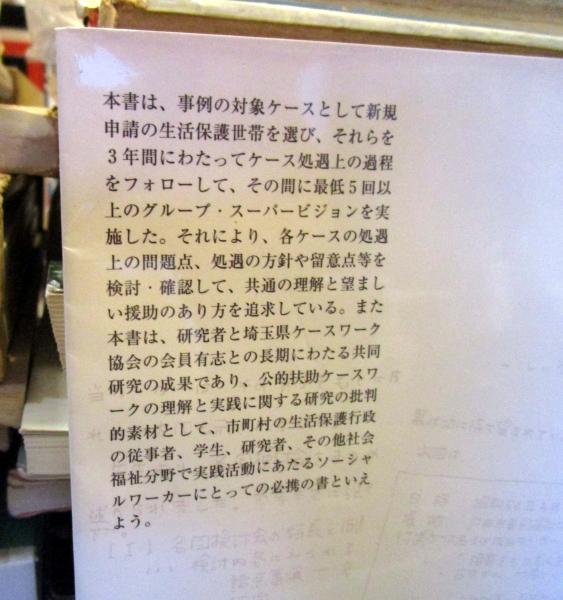 本書は、事例の対象ケースとして新規
申請の生活保護世帯を選び、それらを
3年間にわたってケース処遇上の過程
をフォローして、その間に最低5回以
上のグループ・スーパービジョンを実
施した。それにより、各ケースの処遇
上の問題点、処遇の方針や留意点等を
検討・確認して、共通の理解と望まし
い援助のあり方を追求している。また
本書は、研究者と埼玉県ケースワーク
協会の会員有志との長期にわたる共同
研究の成果であり、公的扶助ケースワ
ークの理解と実践に関する研究の批判
的素材として、市町村の生活保護行政
の従事者、学生、研究者、その他社会
福祉分野で実践活動にあたるソーシャ
ルワーカーにとっての必携の書といえ
よう。